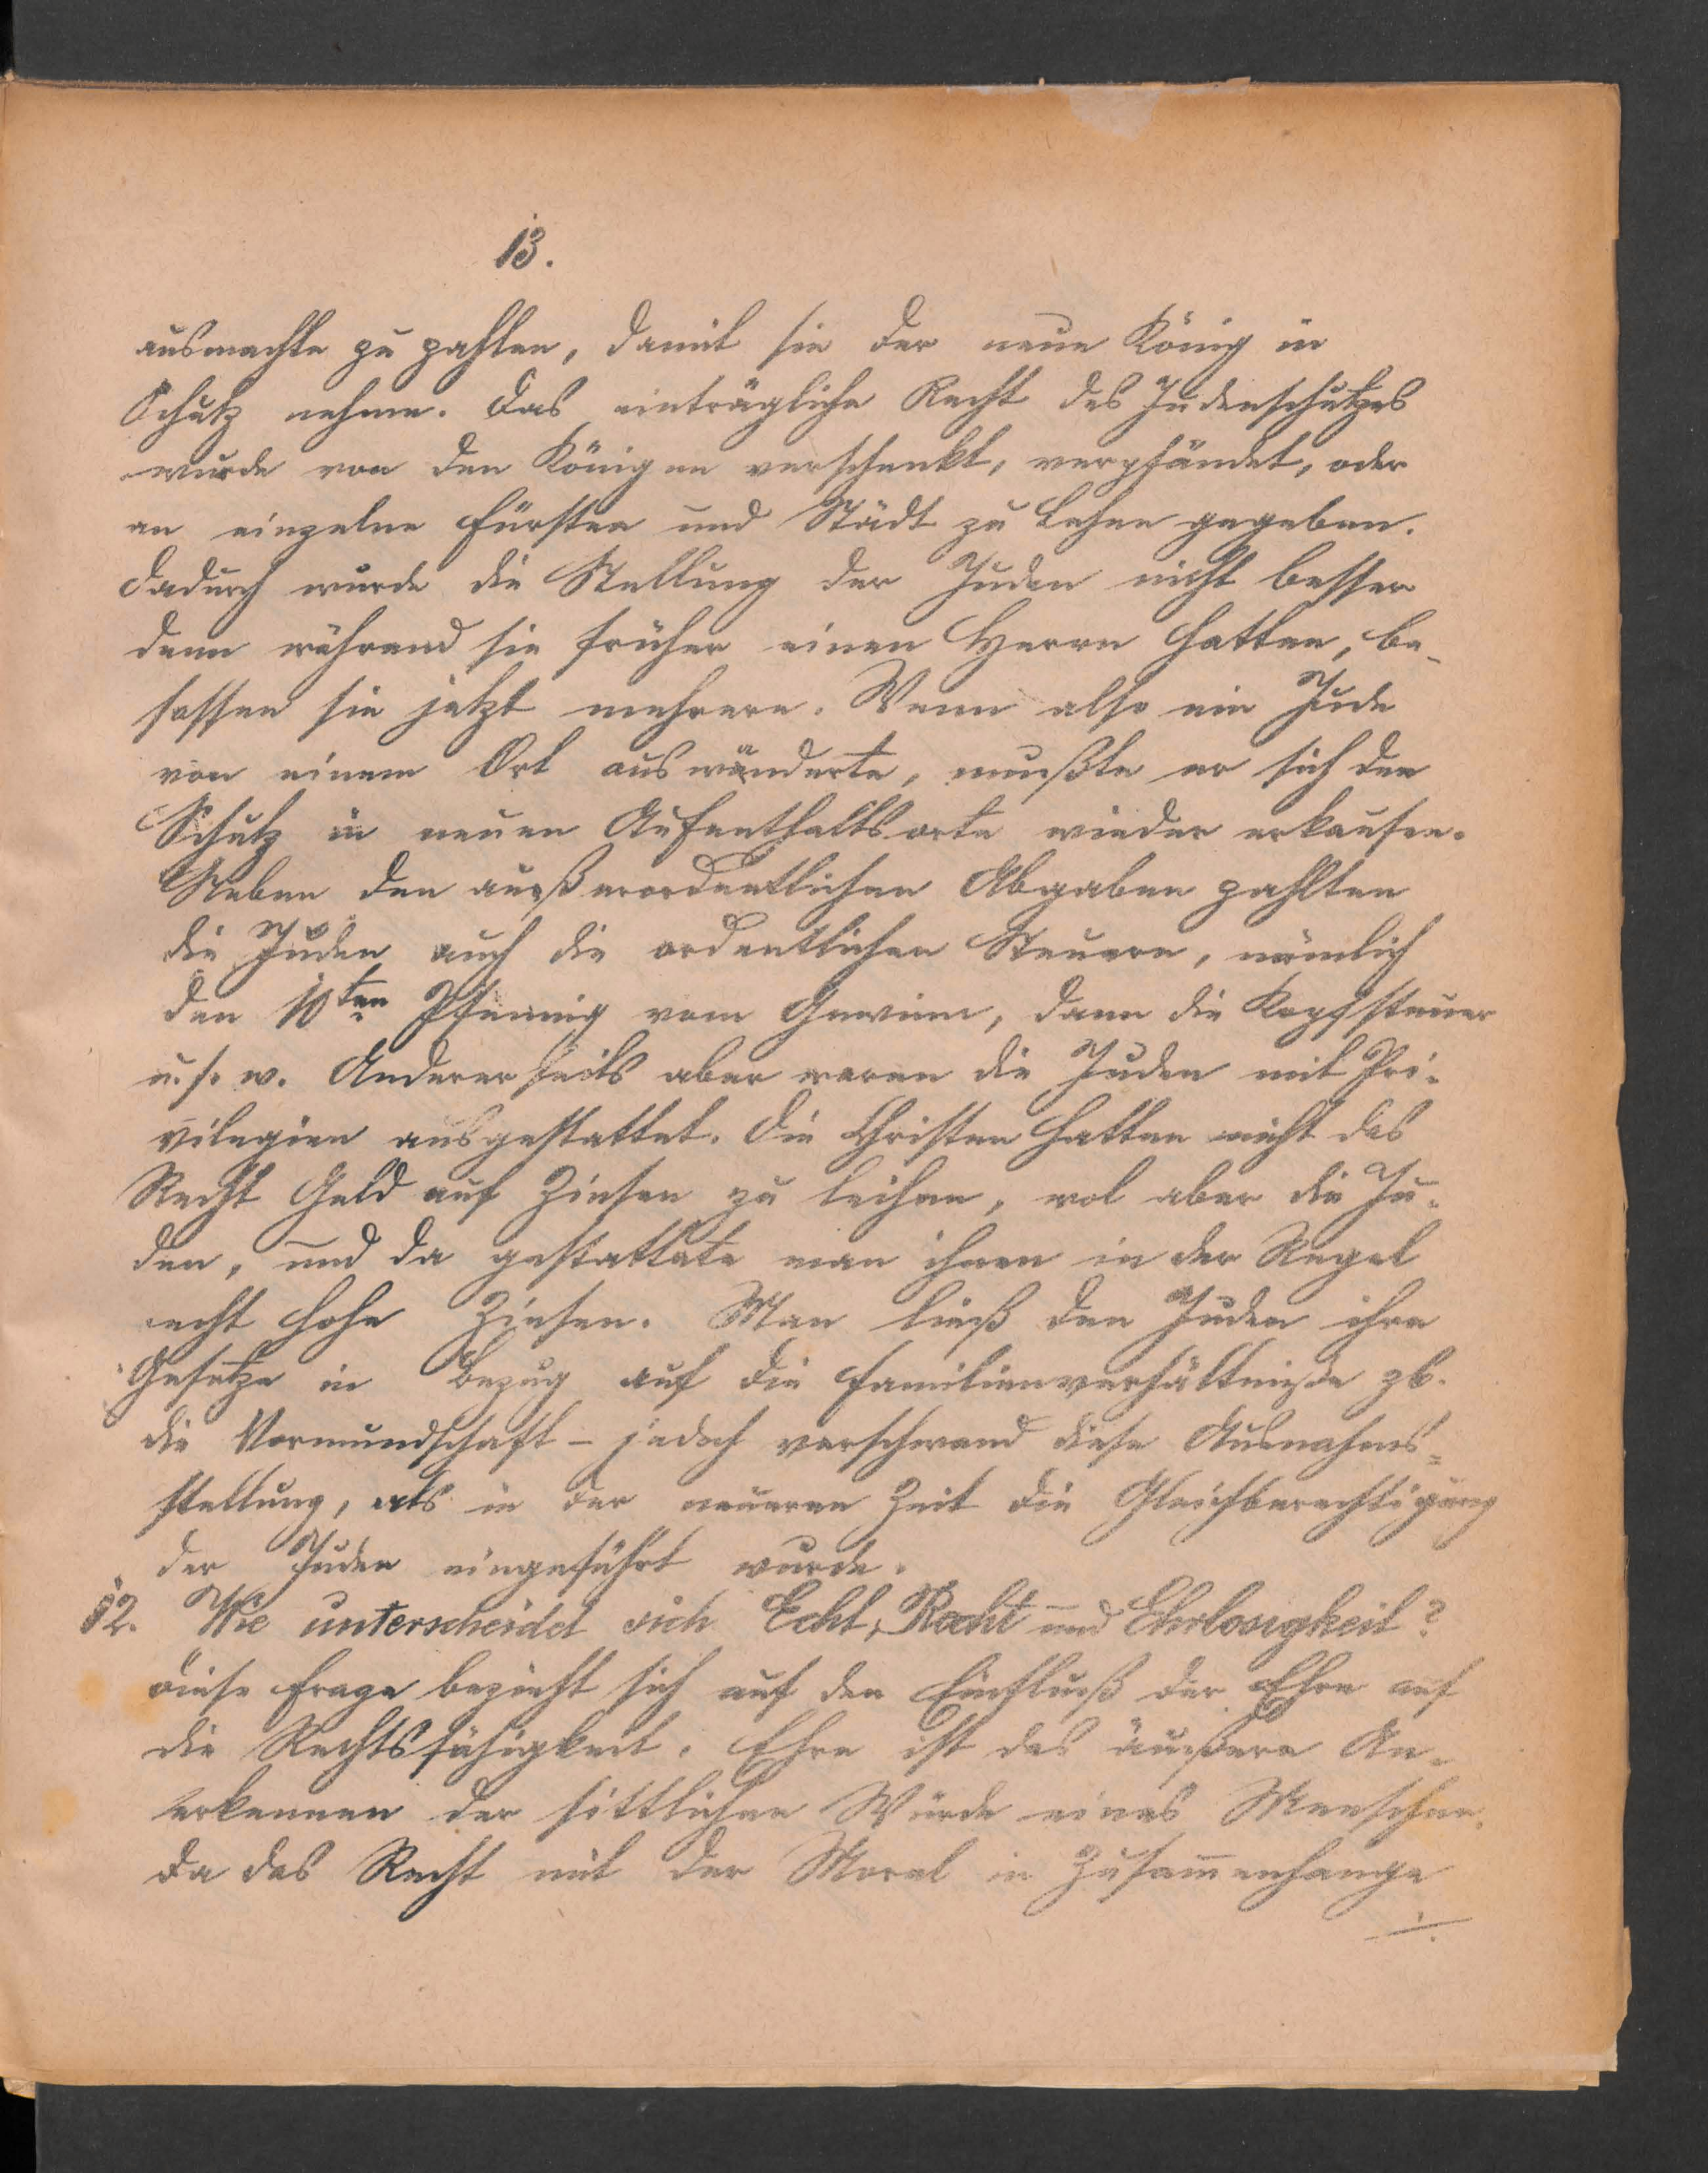 13.
ausmachte zu zahlen, damit sie der neue König in
Schutz nehme. Das einträgliche Recht des Judenschutzes
wurde von den Königen verschenkt, verpfändet, oder
an einzelne Fürsten und Städt zu Lehen gegeben.
Dadurch wurde die Stellung der Juden nicht besser
denn während sie früher einen Herrn hatten, be-
sassen sie jetzt mehrere. Wenn also ein Jude
von einem Ort auswanderte, mußte er sich den
Schutz in neuen Aufenthaltsorte wieder erkaufen.
Neben den außerordentlichen Abgaben zahlten
die Juden auch die ordentlichen Steuern, nämlich
den 10ten Pfennig vom Gewinn, dann die Kopfsteuer
u. s. w. Andererseits aber waren die Juden mit Pri-
vilegien ausgestattet. Die Christen hatten nicht das
Recht Geld auf Zinsen zu leihen, wol aber die Ju-
den, und da gestattete man ihnen in der Regel
recht hohe Zinsen. Man ließ den Juden ihre
Gesetze in Bezug auf die Familienverhältniße zb.
die Vormundschaft – jedoch verschwand diese Ausnahms-
stellung, als in der neueren Zeit die Gleichberechtigung
der Juden eingeführt wurde.
12. Wie unterscheidet sich Echt, Recht und Ehrlosigkeit?
Diese Frage bezieht sich auf den Einfluß der Ehre auf
die Rechtsfähigkeit. Ehre ist das äußere An-
erkennen der sittlichen Würde eines Menschen.
Da das Recht mit der Moral in Zusammenhange
./.